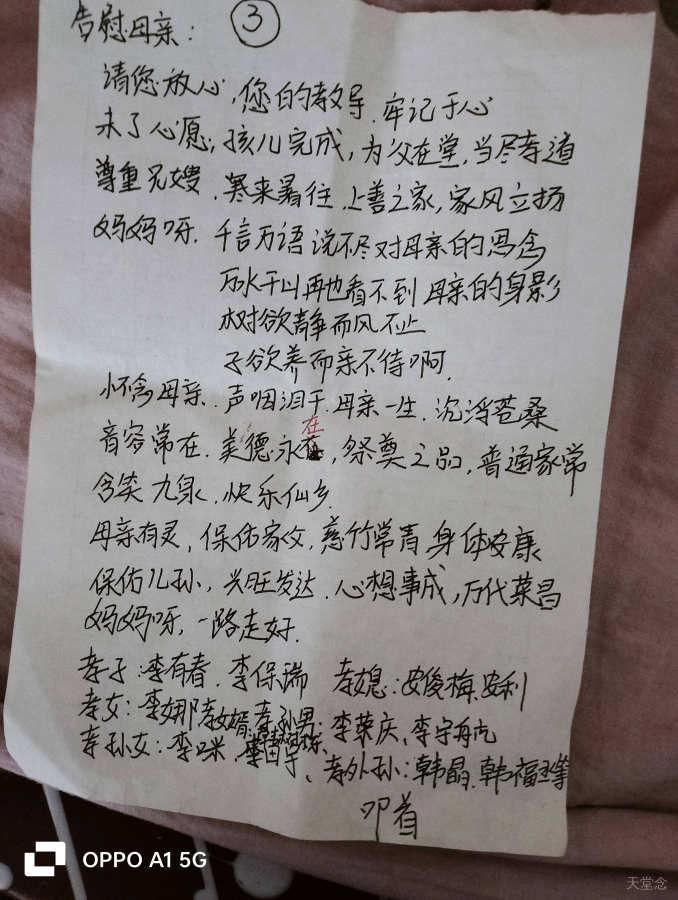 告慰母亲： ③
请您放心，您的教导，牢记于心
未了心愿，孩儿完成，为父在堂，当尽孝道
尊重兄嫂，寒来暑往，上善之家，家风立扬
妈妈呀，千言万语说不尽对母亲的思念
万水千山再也看不到母亲的身影
树欲静而风不止
子欲养而亲不待啊。
怀念母亲，声咽泪干，母亲一生，沉浮苍桑
音容常在，美德永在，祭奠之品，普通家常
含笑九泉，快乐仙乡。
母亲有灵，保佑家父，慈竹常青，身体安康
保佑儿孙，兴旺发达，心想事成，万代荣昌
妈妈呀，一路走好。
孝子：李有春、李保瑞 孝媳：安俊梅、安利
孝女：李娜 孝女婿： 孝孙男：李荣庆、李宇航
孝孙女：李咪、 孝外孙：韩晶、韩福 等
叩首
OPPO A1 5G
天堂念